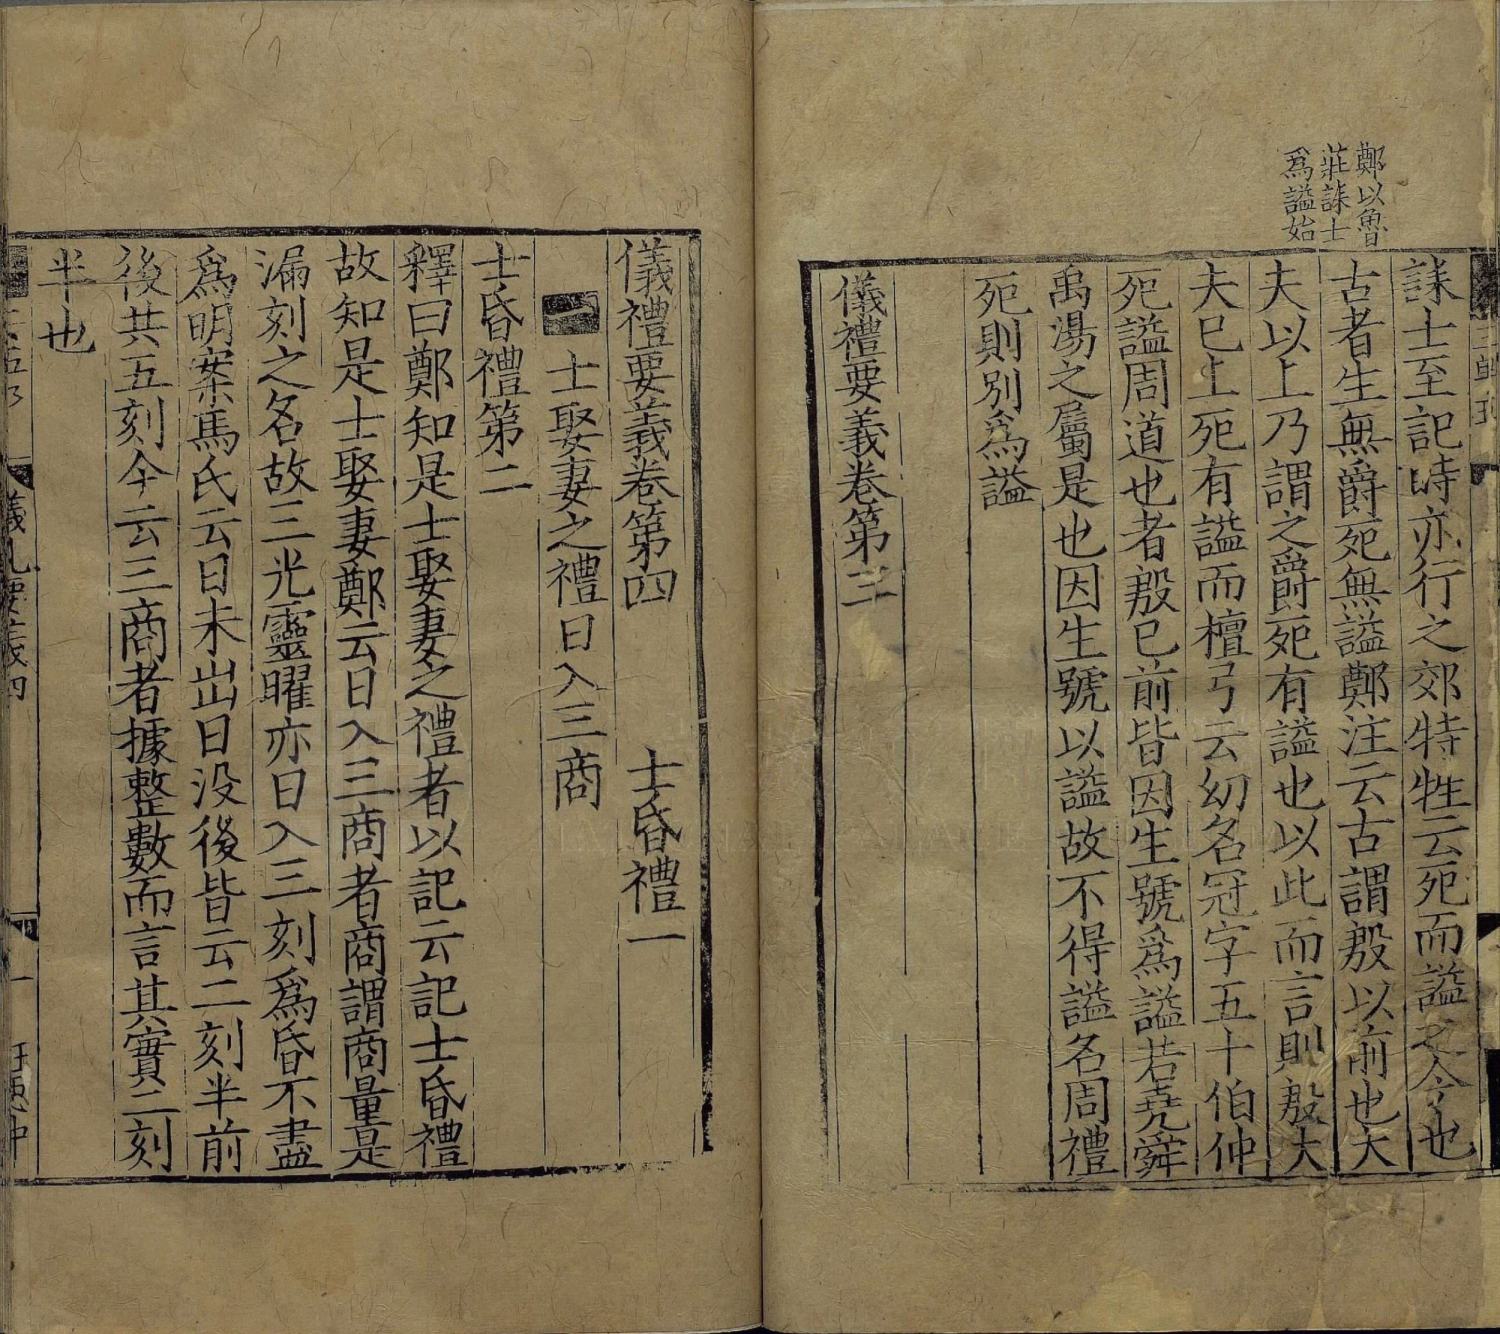 鄭以魯
莊誄士
為謚始
誄士至記時亦行之郊特牲云死而謚之今也
古者生無爵死無謚鄭注云古謂殷以前也大
夫以上乃謂之爵死有謚也以此而言則殷大
夫已上死有謚而檀弓云幼名冠字五十伯仲
死謚周道也者殷已前皆因生號為謚若堯舜
禹湯之屬是也因生號以謚故不得謚名周禮
死則別為謚
儀禮要義卷第三
儀禮要義卷第四 士昏禮一
一 士娶妻之禮日入三商
士昏禮第二
釋曰鄭知是士娶妻之禮者以記云記士昏禮
故知是士娶妻鄭云日入三商者商謂商量是
漏刻之名故三光靈曜亦日入三刻為昏不盡
為明案馬氏云日未出日没後皆云二刻半前
後共五刻今云三商者據整數而言其實二刻
半也